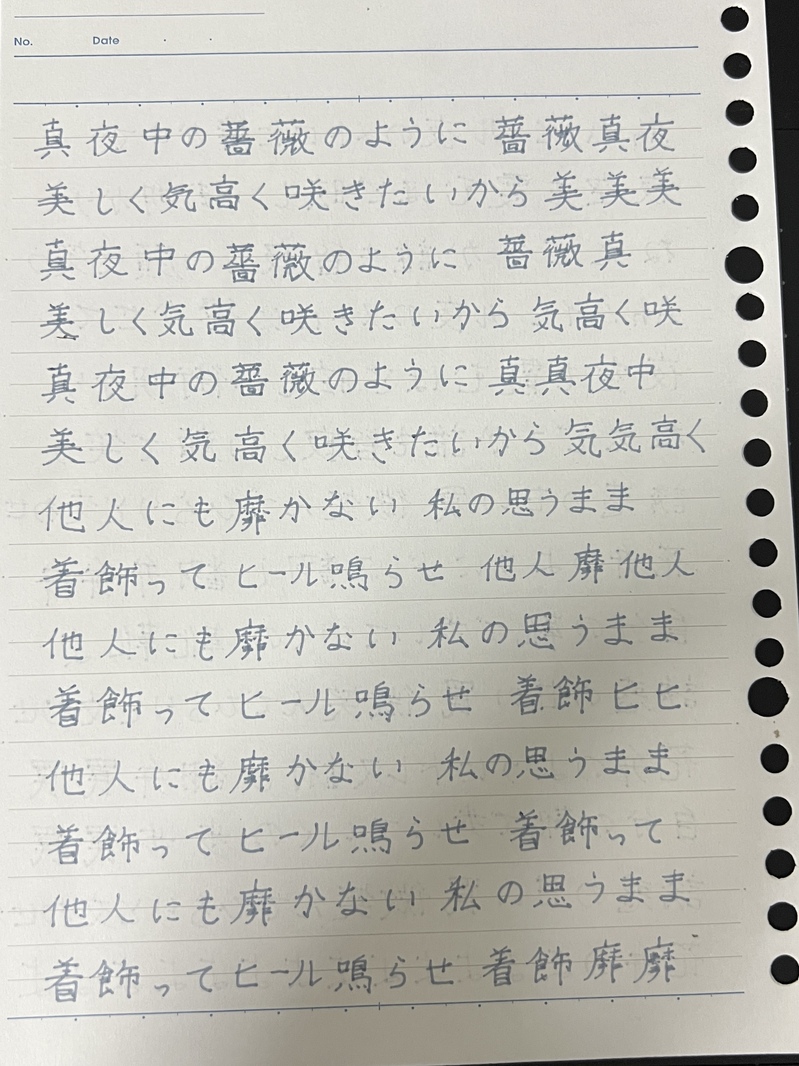 No. Date
真夜中の薔薇のように 薔薇真夜
美しく気高く咲きたいから 美美美
真夜中の薔薇のように 薔薇真
美しく気高く咲きたいから 気高く咲
真夜中の薔薇のように 真真夜中
美しく気高く咲きたいから 気気高く
他人にも靡かない 私の思うまま
着飾ってヒール鳴らせ 他人靡他人
他人にも靡かない 私の思うまま
着飾ってヒール鳴らせ 着飾ヒヒ
他人にも靡かない 私の思うまま
着飾ってヒール鳴らせ 着飾って
他人にも靡かない 私の思うまま
着飾ってヒール鳴らせ 着飾靡靡